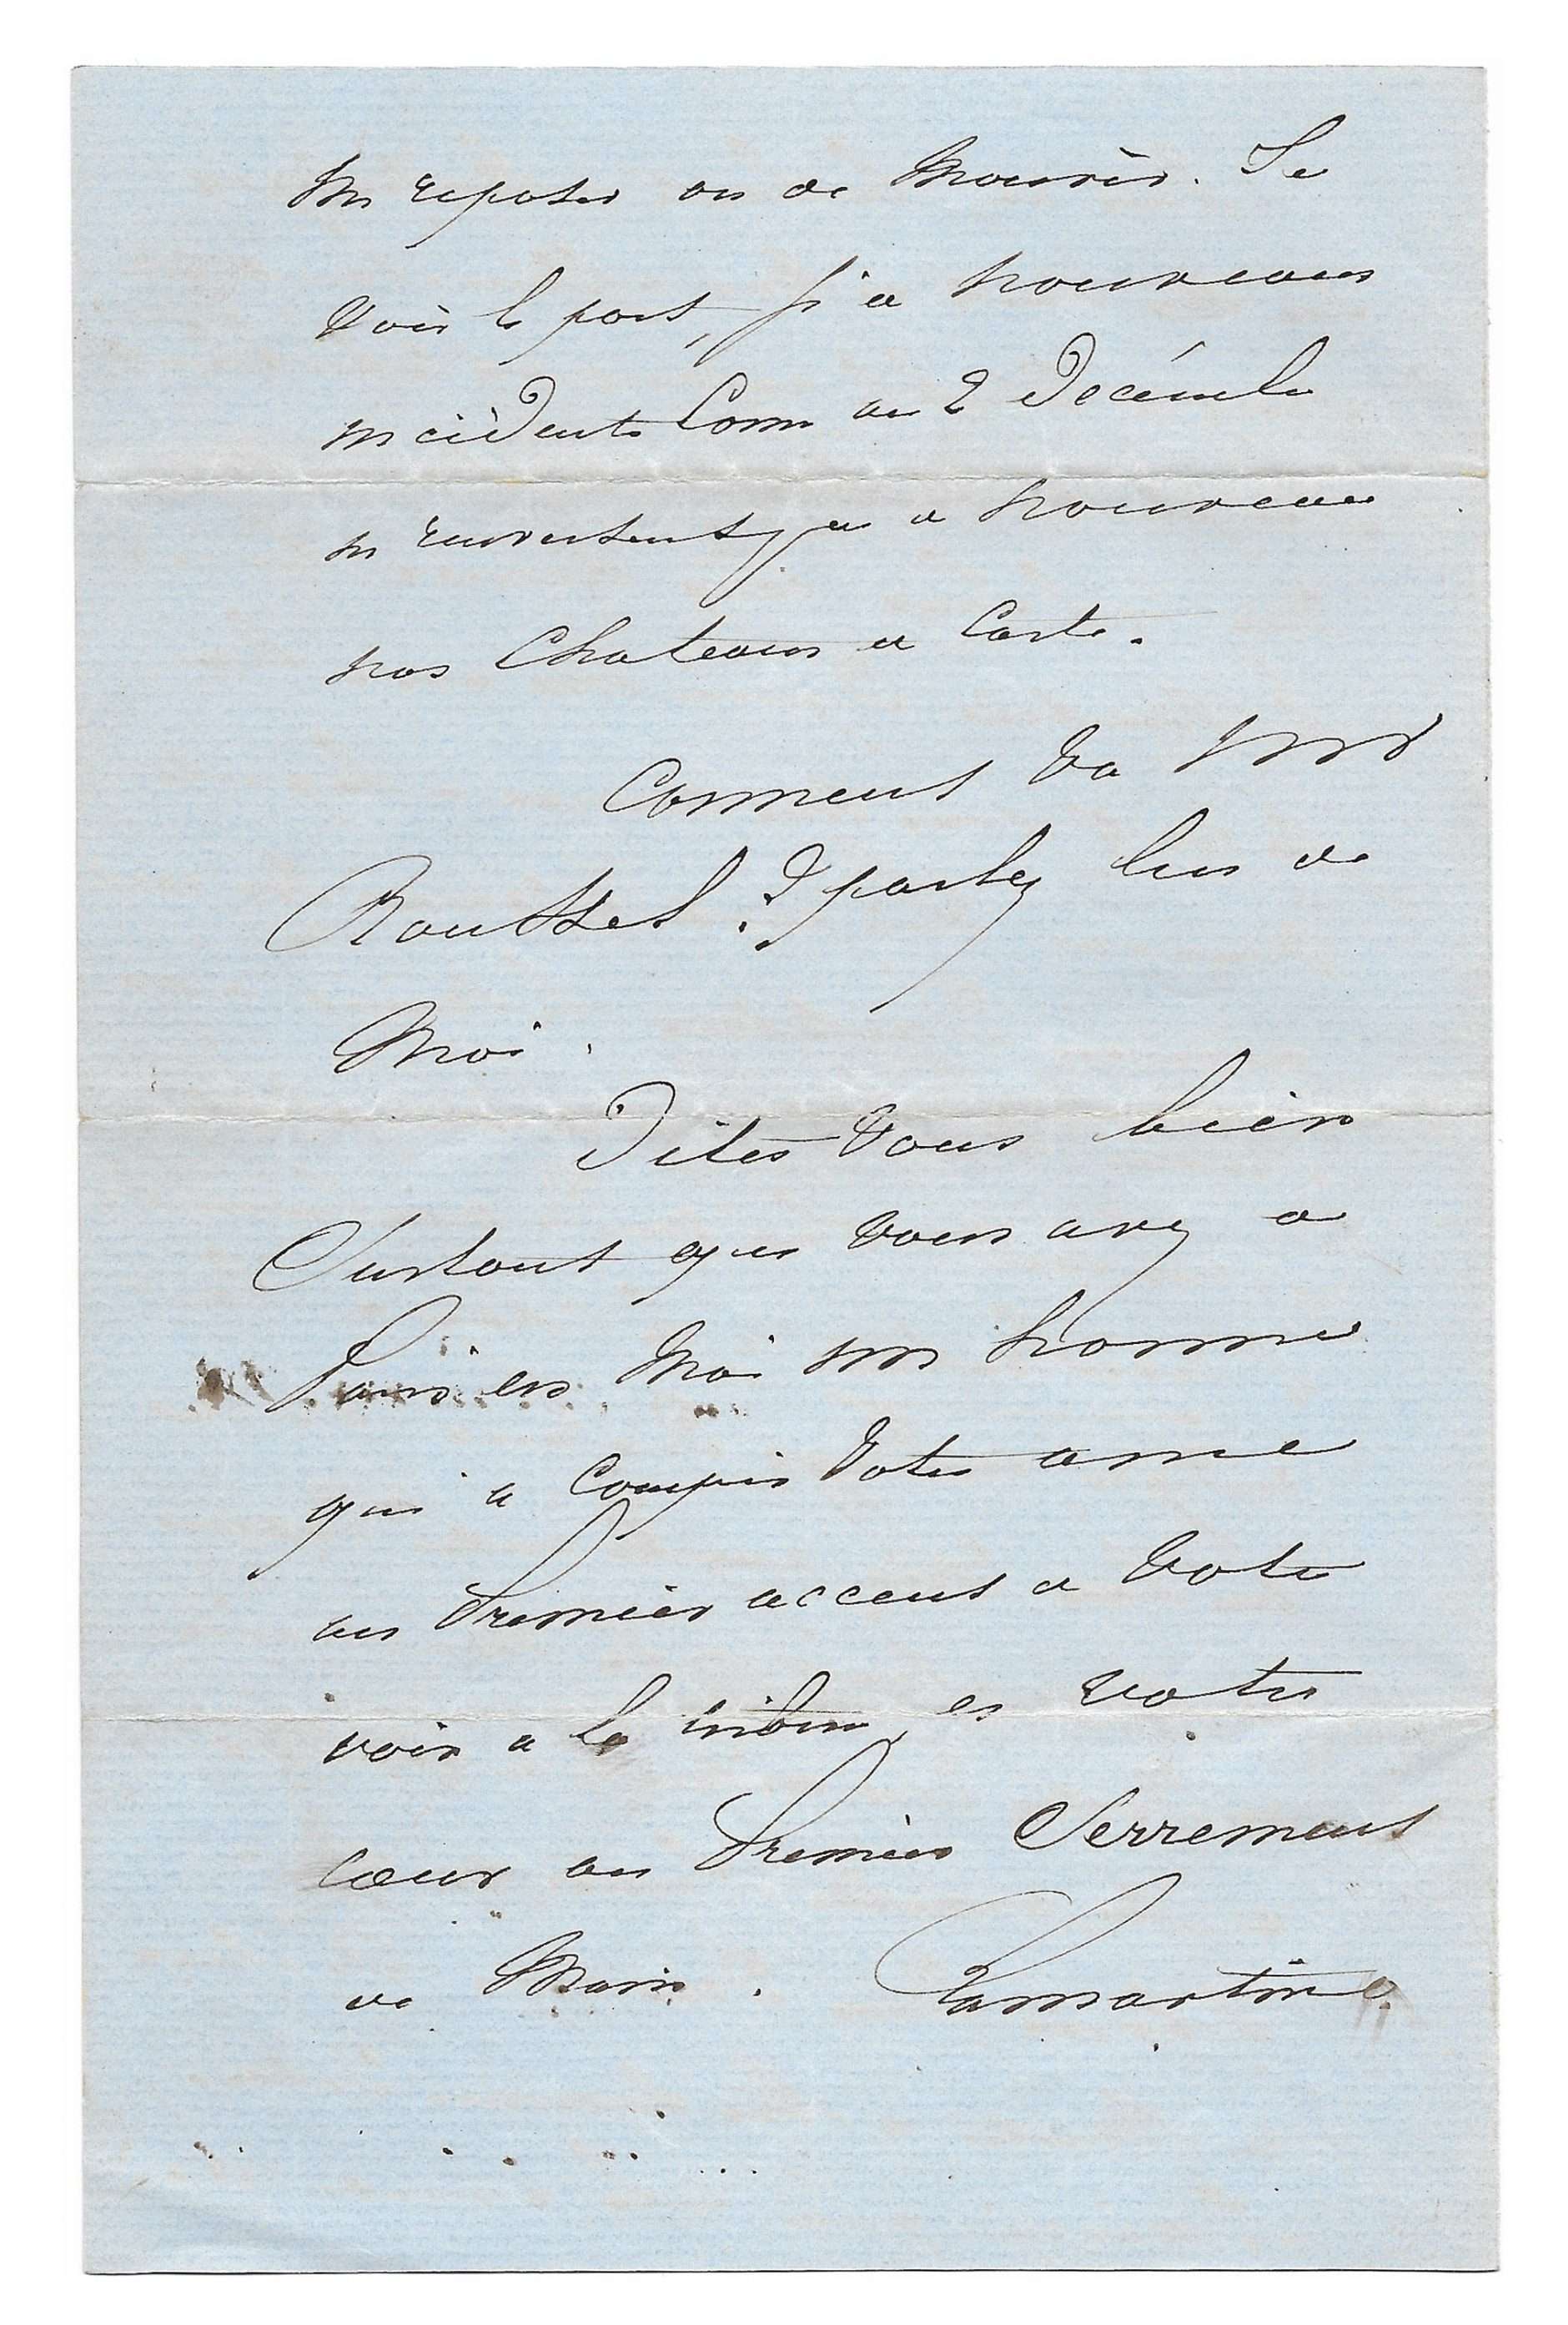 me reposer ou de mourir. Je
vois le port, si de nouveaux
incidents comme au 2 Décembre
ne renversent pas de nouveau
nos chateaux de carte.
Comment va Mr
Rousset ? parlez lui de
moi.
Dites vous bien
surtout que vous avez a
Paris en moi un homme
qui a compris votre ame
au premier accent de votre
voix a la tribune, et votre
cœur au premier serrement
de main. Lamartine